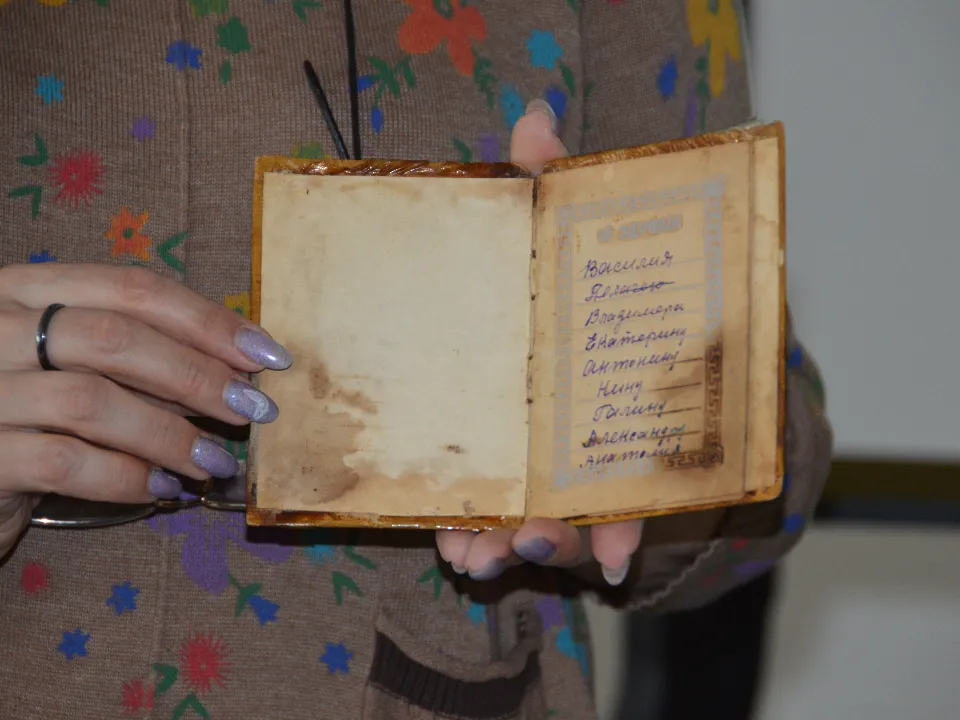 Василия
Пелагею
Владимера
Екатерину
Антонину
Нину
Галину
Александра
Анатолия